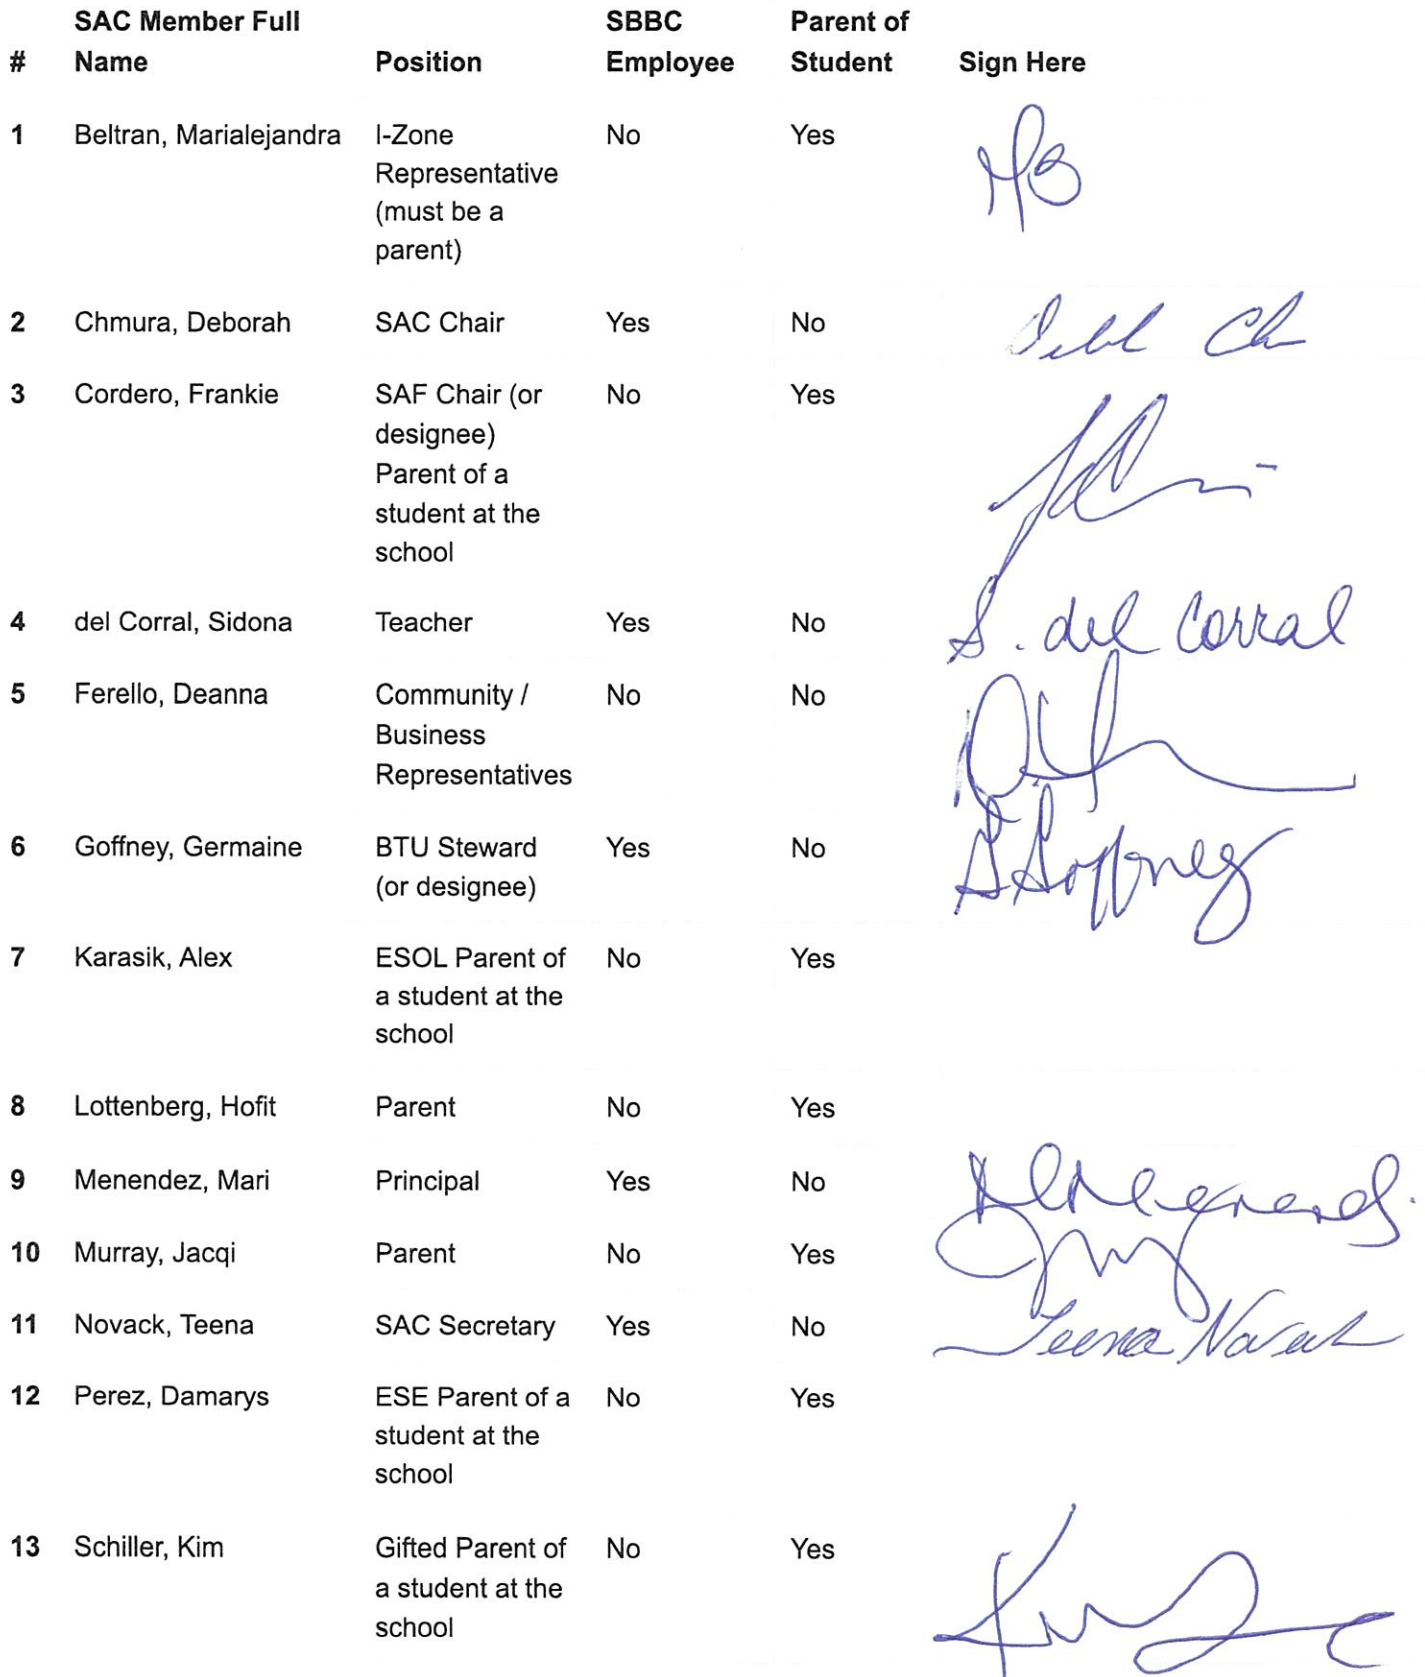 SAC Member Full SBBC Parent of
# Name Position Employee Student Sign Here
1 Beltran, Marialejandra I-Zone No Yes MB
Representative
(must be a
parent)
2 Chmura, Deborah SAC Chair Yes No
3 Cordero, Frankie SAF Chair (or No Yes
designee)
Parent of a
student at the
school
4 del Corral, Sidona Teacher Yes No S. del Corral
5 Ferello, Deanna Community / No No
Business
Representatives
6 Goffney, Germaine BTU Steward Yes No G Goffney
(or designee)
7 Karasik, Alex ESOL Parent of No Yes
a student at the
school
8 Lottenberg, Hofit Parent No Yes
9 Menendez, Mari Principal Yes No
10 Murray, Jacqi Parent No Yes
11 Novack, Teena SAC Secretary Yes No Teena Novack
12 Perez, Damarys ESE Parent of a No Yes
student at the
school
13 Schiller, Kim Gifted Parent of No Yes
a student at the
school